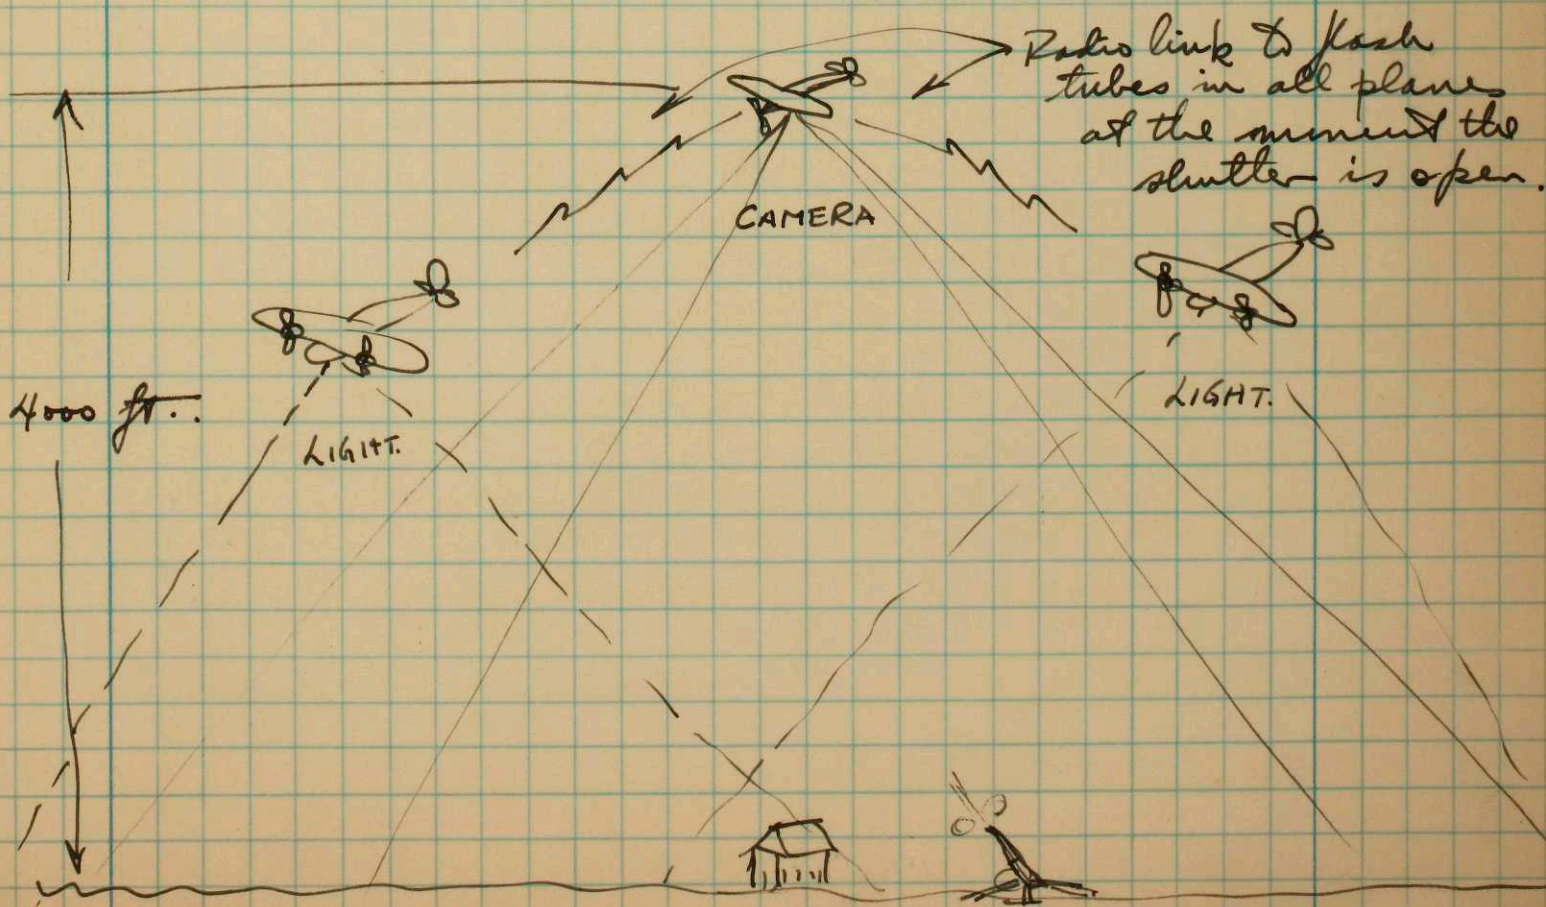 Radio link to flash
tubes in all planes
at the moment the
shutter is open.
CAMERA
4000 ft.
LIGHT.
LIGHT.